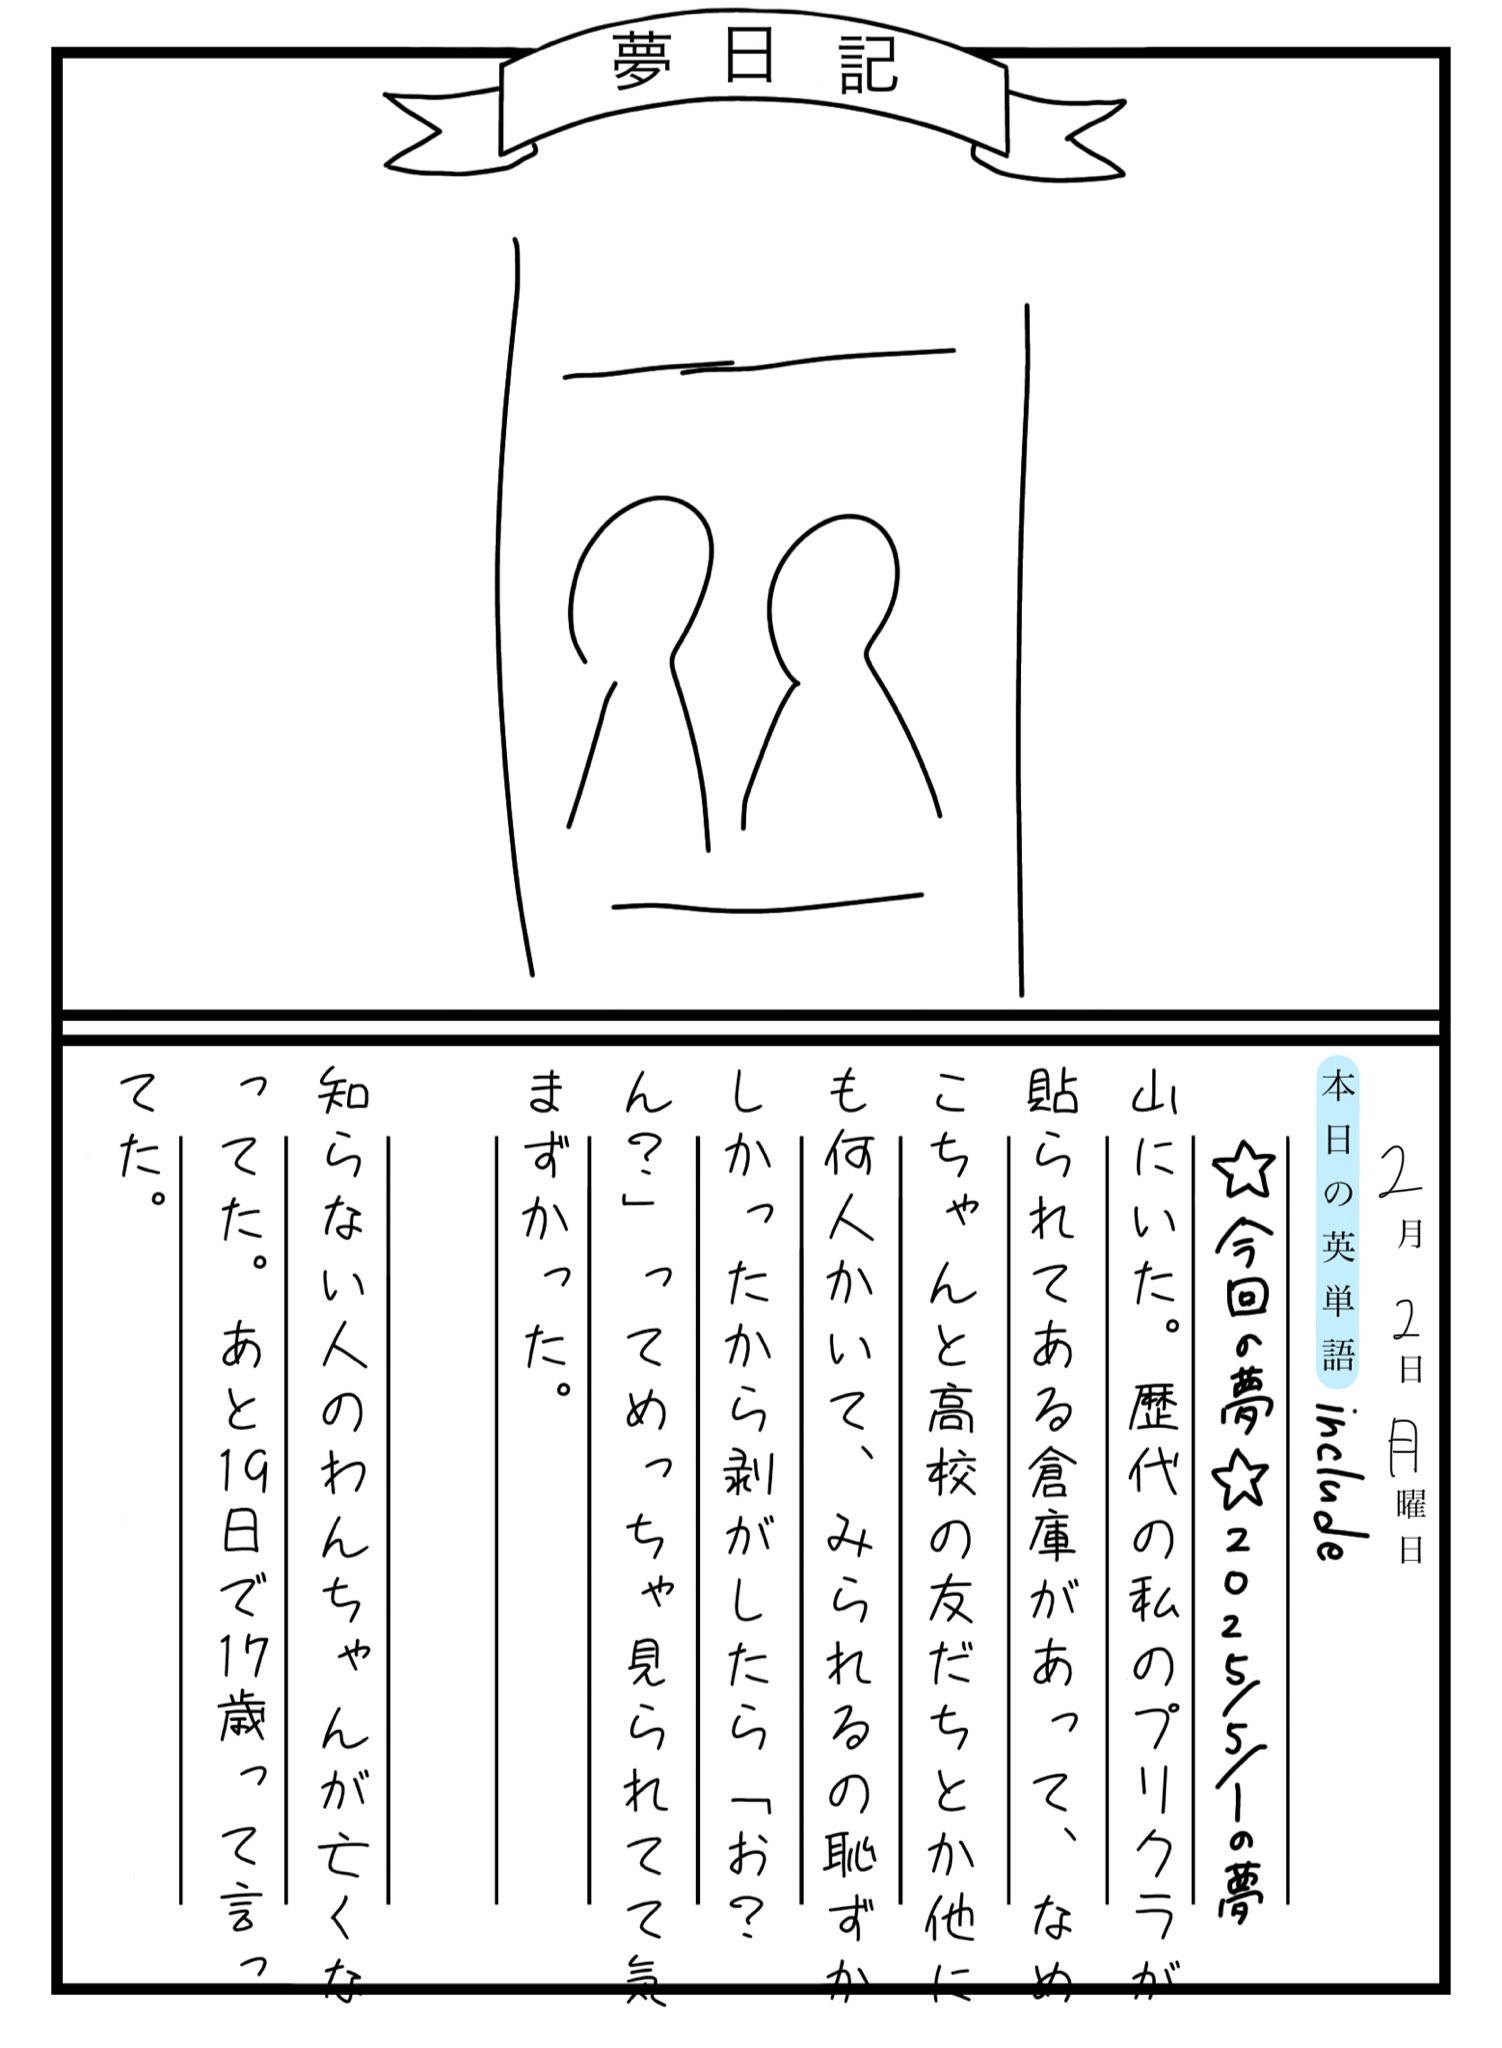 夢日記
2月2日月曜日
本日の英単語 include
☆今回の夢☆2025/5/1の夢
山にいた。歴代の私のプリクラが
貼られてある倉庫があって、なめ
こちゃんと高校の友だちとか他に
も何人かいて、みられるの恥ずか
しかったから剥がしたら「お?
ん?」ってめっちゃ見られてて気
まずかった。
知らない人のわんちゃんが亡くな
ってた。あと19日で17歳って言っ
てた。